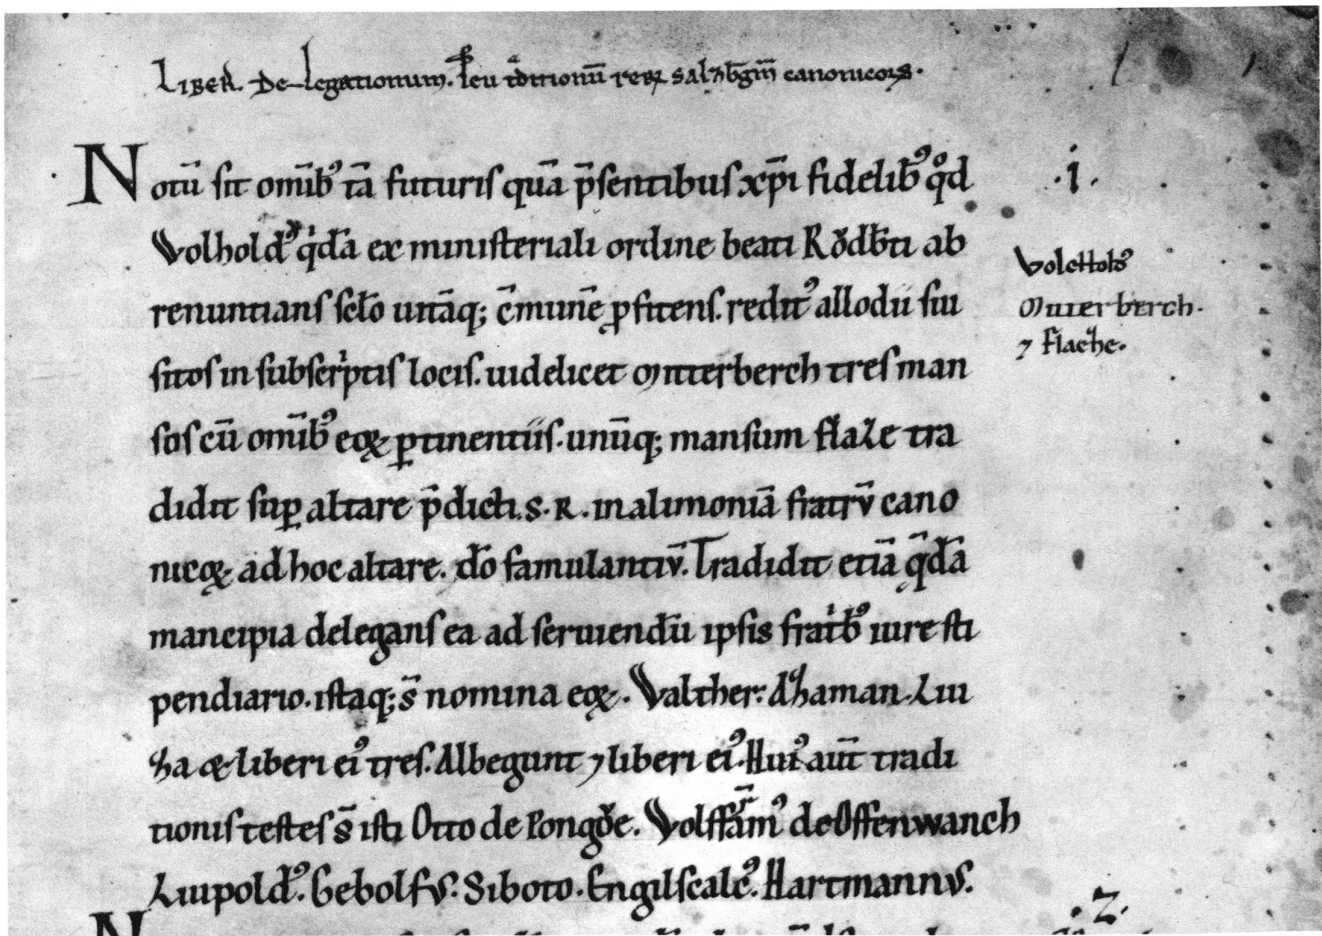 LIBER. De legationum. seu t͛ditionū rerꝝ salzb̄gm̄ canonicoꝝ.
Notū sit om̄ibꝰ tā futuris quā p̄sentibus xp̄i fidelibꝰ qͦd
·i·
Wolholdꝰ qͥdā ex ministeriali ordine beati Rǒdb̄ti ab
renuntians sc̄lo unāq; c̄munē ꝓfitens. reditꝰ allodii sui
Ottterberch.
sitos in subscͥptis locis. uidelicet Otterberch tres man
⁊ flache.
sos cū om̄ibꝰ eoꝝ ꝑtinentiis. unūq; mansum flaze tra
didit suꝑ altare p̄dicti. S. R. in alimoniā fratrū cano
nicoꝝ ad hoc altare. dō famulantiū. Tradidit etiā q̄dā
mancipia delegans ea ad seruiendū ipsis fratͥbꝰ iure sti
pendiario. istaq; s̄ nomina eoꝝ. Walther. Ahaman. Liu
ha & liberi eiꝰ tres. Albegunt ⁊ liberi eiꝰ. Huiꝰ aut̄ tradi
tionis testes s̄ isti Otto de Pongǒe. Wolffrāmꝰ de Offenwanch
Liupoldꝰ. Gebolfus. Siboto. Engilscalcꝰ. Hartmannus.
·2·
N